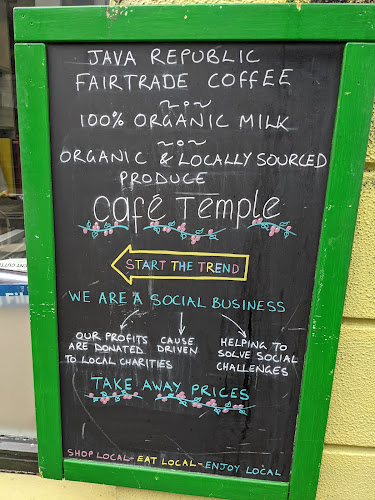 JAVA REPUBLIC
FAIRTRADE COFFEE
100% ORGANIC MILK
ORGANIC & LOCALLY SOURCED
PRODUCE
café Temple
START THE TREND
WE ARE A SOCIAL BUSINESS
OUR PROFITS
ARE DONATED
TO LOCAL CHARITIES
CAUSE
DRIVEN
HELPING TO
SOLVE SOCIAL
CHALLENGES
TAKE AWAY PRICES
SHOP LOCAL - EAT LOCAL - ENJOY LOCAL